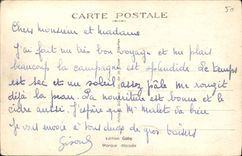 50
CARTE POSTALE
Chers monsieur et madame
J'ai fait un très bon voyage et me plais
beaucoup la campagne est splendide. Le temps
est sec et un soleil assez pâle me rougit
déjà la peau. La nourriture est bonne et le
cidre aussi. J'espère que Mr Malet va bien
Je vous envoie à tous deux de gros baisers
Edition Gaby
Marque déposée